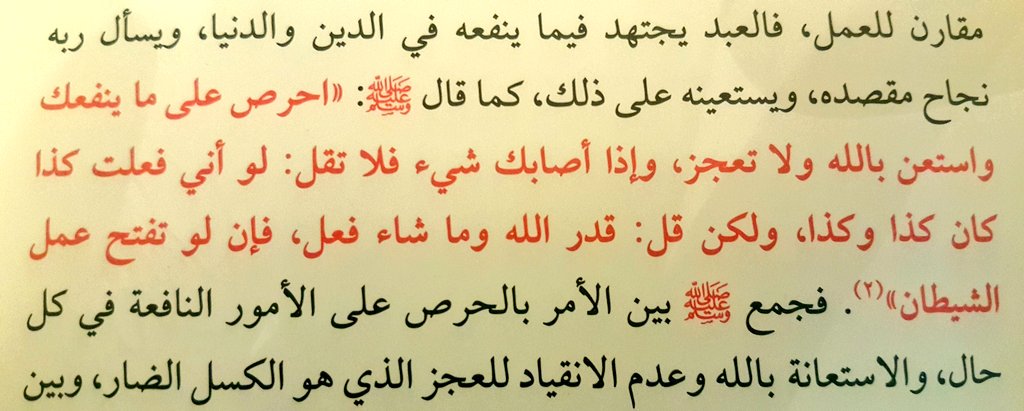 مقارن للعمل، فالعبد يجتهد فيما ينفعه في الدين والدنيا، ويسأل ربه
نجاح مقصده، ويستعينه على ذلك، كما قال ﷺ: «احرص على ما ينفعك
واستعن بالله ولا تعجز، وإذا أصابك شيء فلا تقل: لو أني فعلت كذا
كان كذا وكذا، ولكن قل: قدر الله وما شاء فعل، فإن لو تفتح عمل
الشيطان»(٢). فجمع ﷺ بين الأمر بالحرص على الأمور النافعة في كل
حال، والاستعانة بالله وعدم الانقياد للعجز الذي هو الكسل الضار، وبين